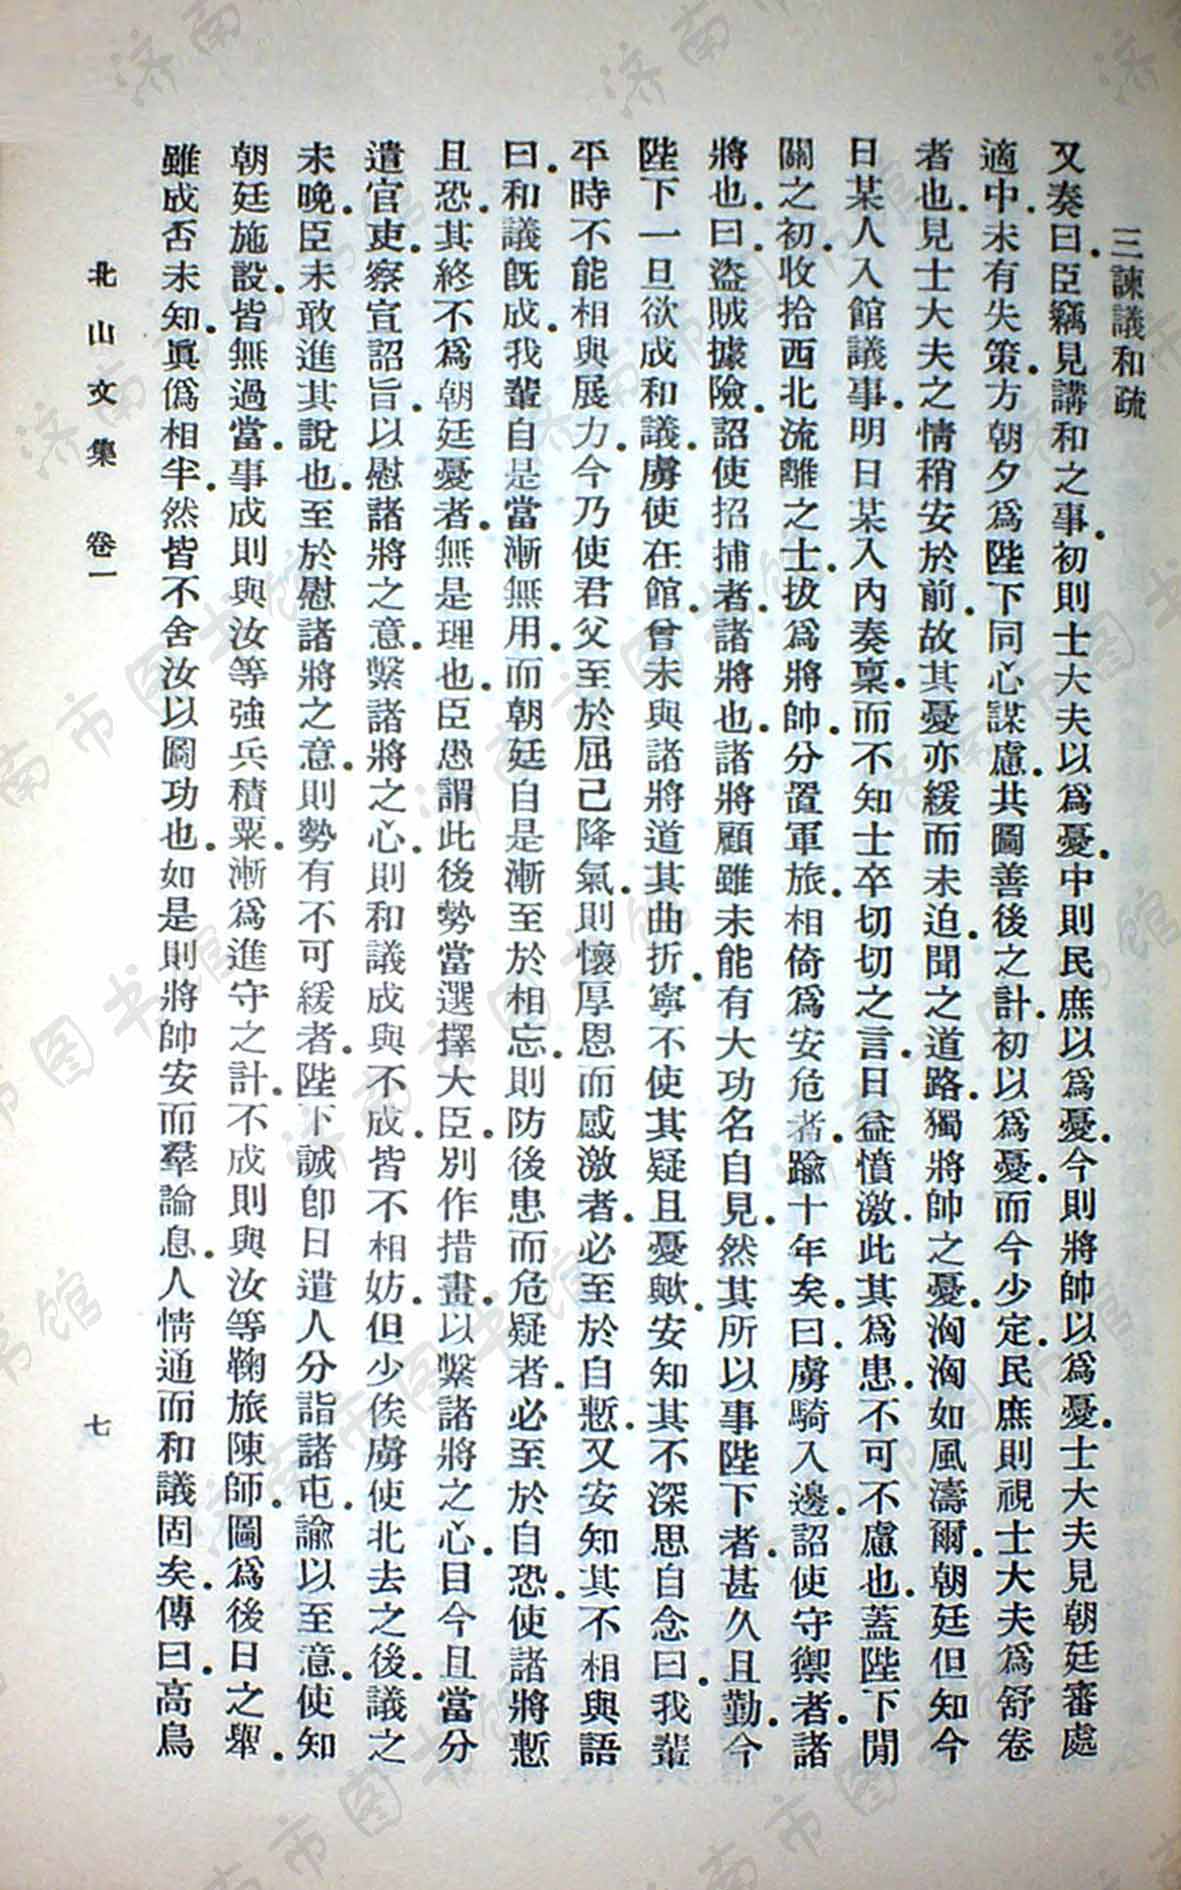 三諫議和疏
又奏曰.臣竊見講和之事.初則士大夫以爲憂.中則民庶以爲憂.今則將帥以爲憂.士大夫見朝廷審處
適中.未有失策.方朝夕爲陛下同心謀慮.共圖善後之計.初以爲憂.而今少定.民庶則視士大夫爲舒卷
者也.見士大夫之情稍安於前.故其憂亦緩而未迫.聞之道路.獨將帥之憂.洶洶如風濤爾.朝廷但知今
日某人入館議事.明日某入內奏稟.而不知士卒切切之言.日益憤激.此其爲患.不可不慮也.蓋陛下閒
關之初.收拾西北流離之士.拔爲將帥.分置軍旅.相倚爲安危者.踰十年矣.曰虜騎入邊.詔使守禦者.諸
將也.曰盜賊據險.詔使招捕者.諸將也.諸將顧雖未能有大功名自見.然其所以事陛下者.甚久且勤.今
陛下一旦欲成和議.虜使在館.曾未與諸將道其曲折.寧不使其疑且憂歟.安知其不深思自念曰.我輩
平時不能相與展力.今乃使君父至於屈己降氣.則懷厚恩而感激者.必至於自慙.又安知其不相與語
曰.和議旣成.我輩自是當漸無用.而朝廷自是漸至於相忘.則防後患而危疑者.必至於自恐.使諸將慙
且恐.其終不爲朝廷憂者.無是理也.臣愚謂此後勢當選擇大臣.別作措畫.以繫諸將之心.目今且當分
遣官吏.察宣詔旨.以慰諸將之意.繫諸將之心.則和議成與不成.皆不相妨.但少俟虜使北去之後.議之
未晚.臣未敢進其說也.至於慰諸將之意.則勢有不可緩者.陛下誠卽日遣人分詣諸屯.諭以至意.使知
朝廷施設.皆無過當.事成則與汝等強兵積粟.漸爲進守之計.不成則與汝等鞠旅陳師.圖爲後日之舉.
雖成否未知.眞僞相半.然皆不舍汝以圖功也.如是則將帥安而羣論息.人情通而和議固矣.傳曰.高鳥
北山文集 卷一
七
济南市图书馆